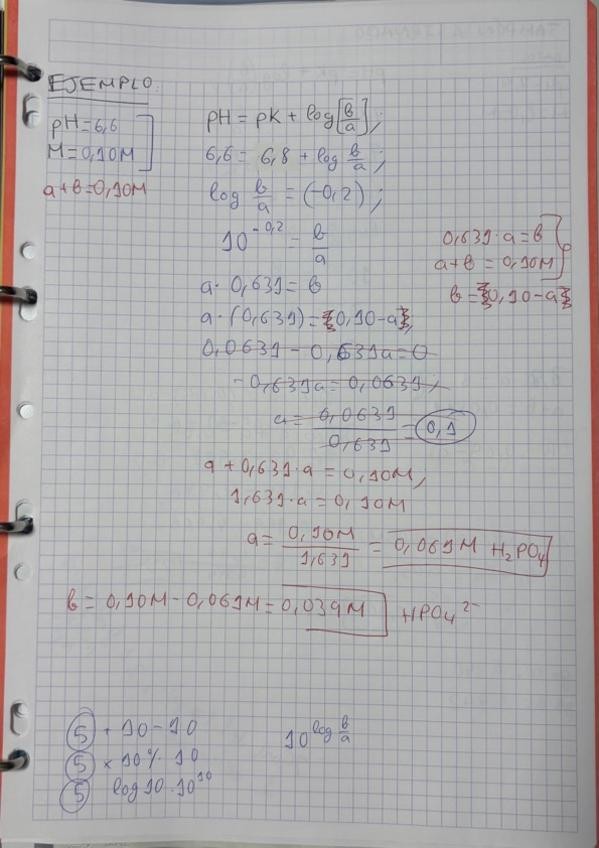 EJEMPLO
pH = 6,6
M = 0,10M
a+b=0,10M
pH = pK + log[b/a];
6,6 = 6,8 + log b/a;
log b/a = (-0,2);
10^-0,2 = b/a
a · 0,631 = b
a · (0,631) = {0,10-a};
0,0631 - 0,631a = 0
-0,631a = 0,0631;
a = 0,0631/0,631 = 0,1
0,631·a = b
a+b = 0,10M
b = {0,10-a}
a + 0,631·a = 0,10M,
1,631·a = 0,10M
a = 0,10M/1,631 = 0,061M H2PO4
b = 0,10M - 0,061M = 0,039M HPO4^2-
5 + 10 - 10
5 × 10 % 10
5 log 10 · 10^10
10^log b/a